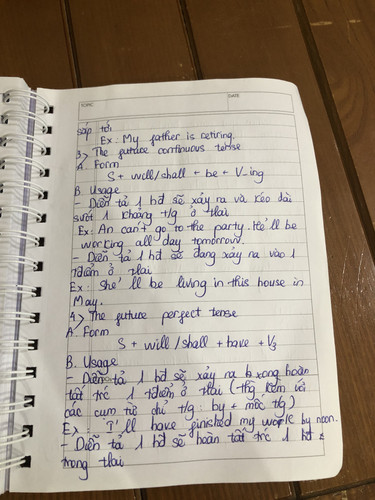 TOPIC DATE
sắp tới
Ex: My father is retiring.
3> The future continuous tense
A. Form
S + will/shall + be + V-ing
B. Usage
- Diễn tả 1 hđ sẽ xảy ra và kéo dài
suốt 1 khoảng t/g ở tlai
Ex: An can't go to the party. He'll be
working all day tomorrow.
- Diễn tả 1 hđ sẽ đang xảy ra vào 1
tđiểm ở tlai
Ex: She'll be living in this house in
May.
4> The future perfect tense
A. Form
S + will/shall + have + V3
B. Usage
- Diễn tả 1 hđ sẽ xảy ra & xong hoàn
tất trc 1 tđiểm ở tlai (thg kèm với
các cụm từ chỉ t/g: by + mốc t/g)
Ex: I'll have finished my work by noon.
- Diễn tả 1 hđ sẽ hoàn tất trc 1 hđ
trong tlai